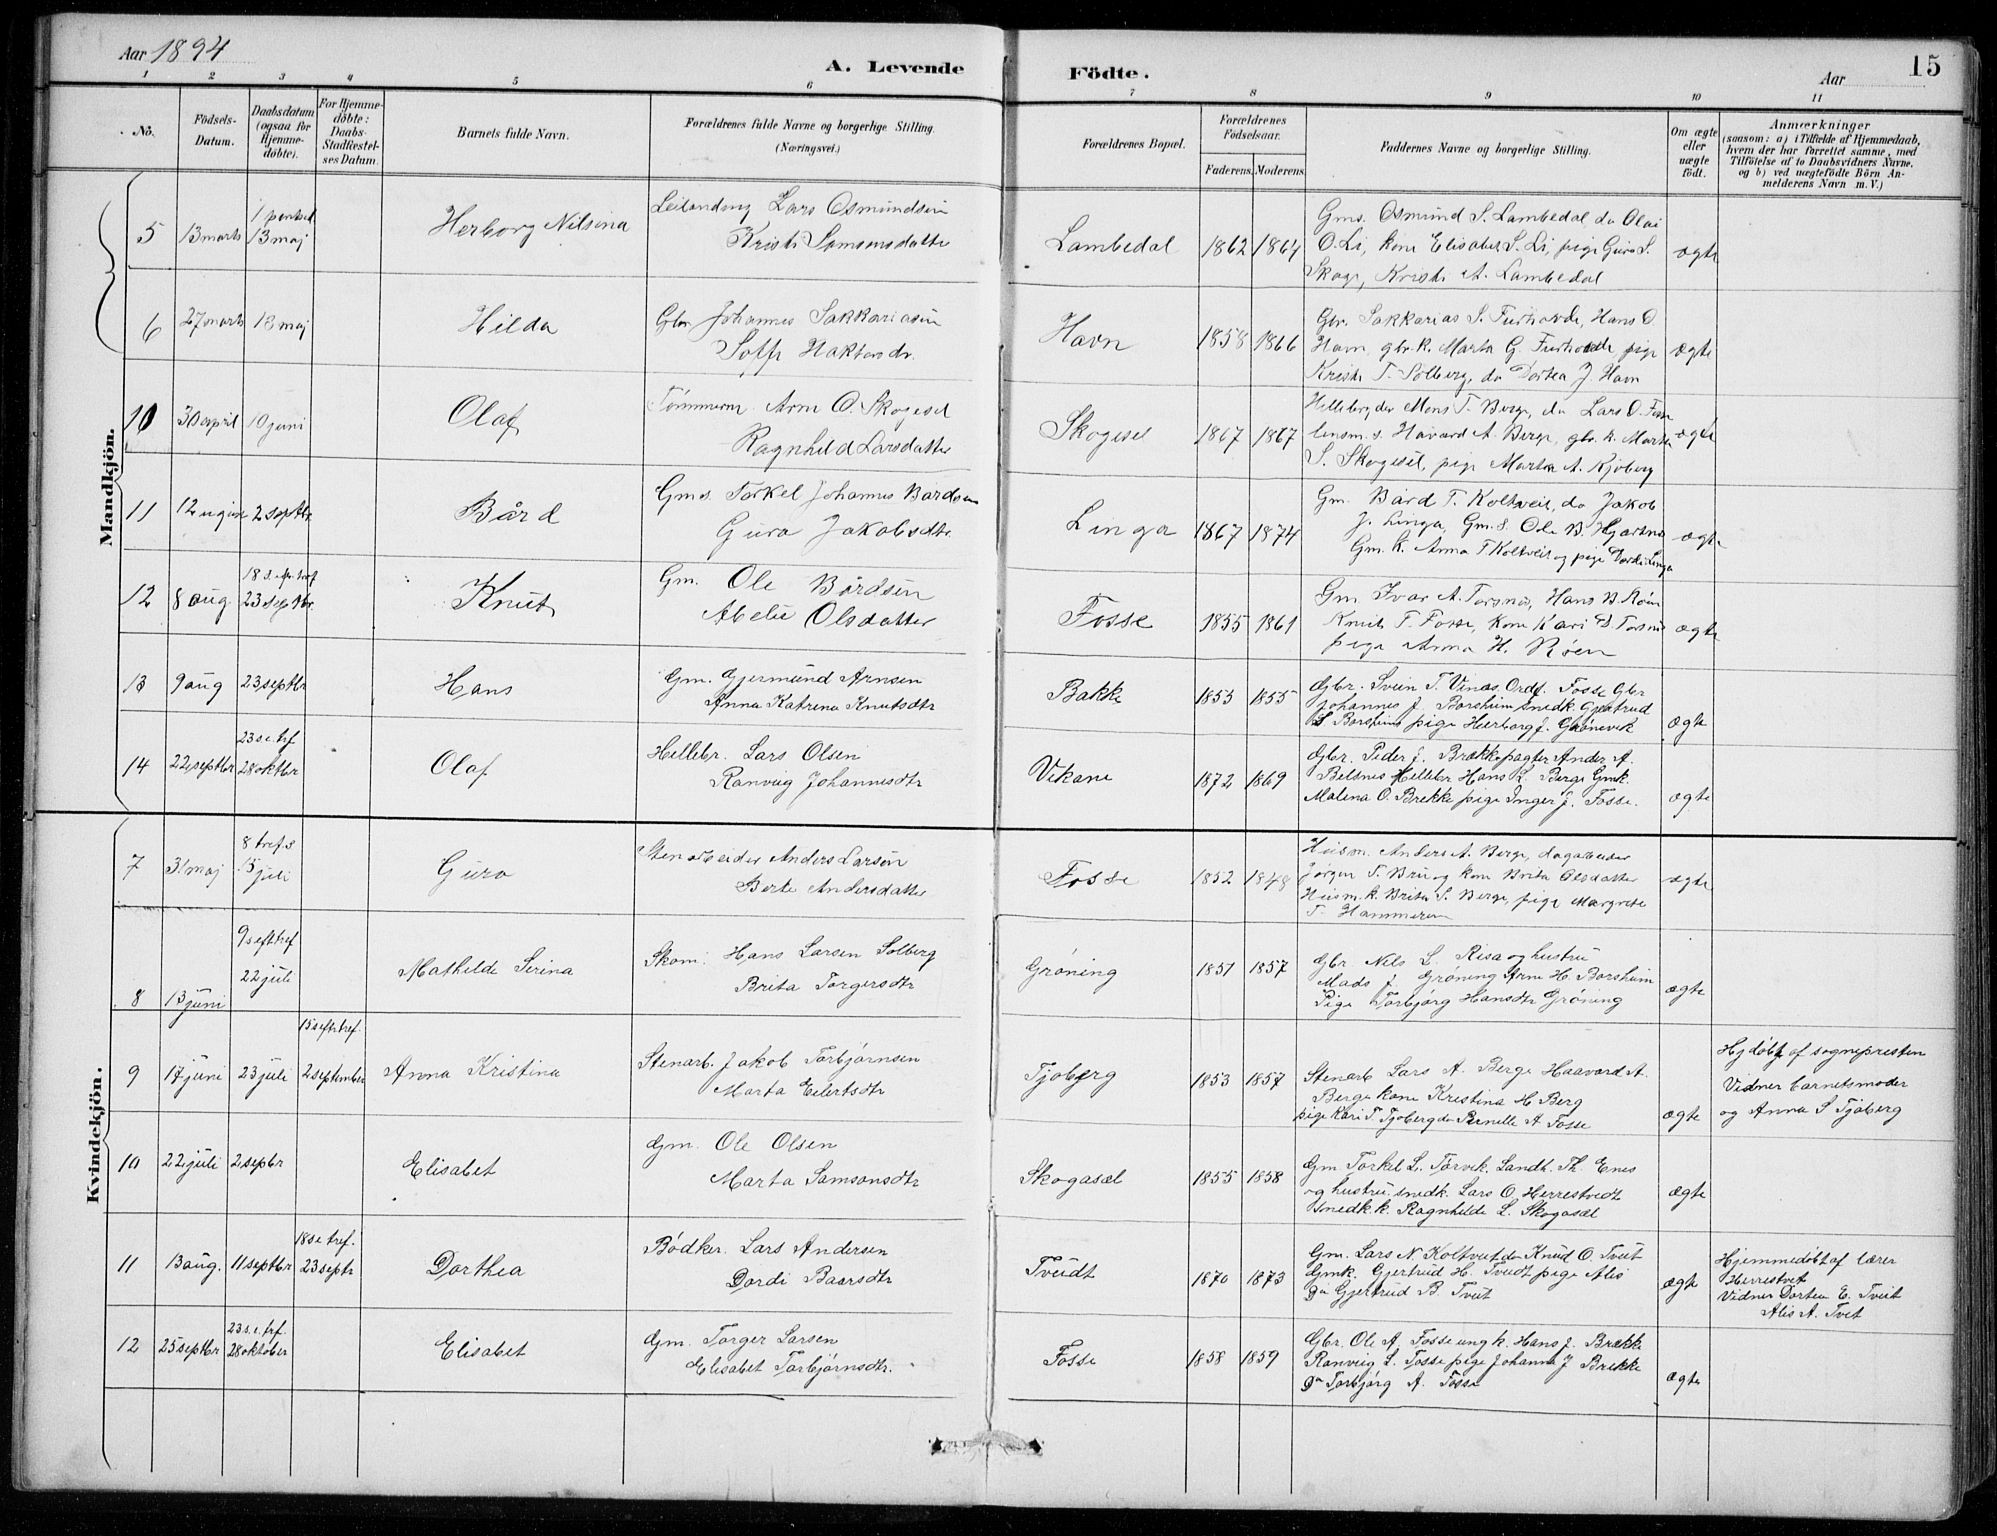 Aar 1894
A. Levende
Födte.
Aar
15
1 2 3 4 5 6 7 8 9 10 11
No.
Födsels-
Datum.
Daabsdatum
(ogsaa for
Hjemme-
döbte).
For Hjemme-
döbte:
Daabs-
Stadfæstel-
ses Datum.
Barnets fulde Navn.
Forældrenes fulde Navne og borgerlige Stilling.
(Næringsvei.)
Forældrenes Bopæl.
Forældrenes
Födselsaar.
Faderens. Moderens.
Faddernes Navne og borgerlige Stilling.
Om ægte
eller
uægte
födt.
Anmærkninger
(saasom: a) i Tilfælde af Hjemmedaab,
hvem der har forrettet samme, med
Tilföielse af to Daabsvidners Navne,
og b) ved uægtefödte Börn An-
melderens Navn m. V.)
Mandkjön.
5 13 marts 13 maj Herborg Nilsina
Lars Osmundsen
Kristi Samsonsdatter
Lambedal 1862 1864
Gms. Osmund S. Lambedal do Olai
O. Li, kone Elisabet S. Li, pige Guro S.
Skoge, Kristi A. Lambedal
ægte
6 27 marts 13 maj Hilda
Gbr. Johannes Sakkariasen
Havn 1858 1866
Gbr. Sakkarias S. Furhovde, Hans O.
Havn, gbr. k. Marta G. Furhovde pige
Kristi T. Solberg, do Dortea J. Havn
ægte
10 30 april 10 juni Olaf
Tømmerm Arne O. Skogesel
Ragnhild Larsdatter
Skogesel 1867 1867
Mons T. Berge, do Lars O. Fosse
lensm. s. Havard A. Berge, gbr. k. Marta
S. Skogesel, pige Marta A. Kjoberg
ægte
11 2 septbr. Bård
Gms. Torkel Johannes Bardsen
Guro Jakobsdtr.
Linga 1867 1874
Gm. Bård T. Koltveit, do Jakob
J. Linga, Gm. s. Ole B. Hjartnes
Gm. k. Anna T Koltveit og pige Dordi Linga
ægte
12 8 aug 23 septbr. Knut
Gm. Ole Bårdsen
Abelu Olsdatter
Fosse 1855 1861
Gm Ivar A. Torsnes, Hans B. Røen
Knut T. Fosse, kone Kari D. Torsnes
pige Anna H. Røen
ægte
13 9 aug 23 septbr Hans
Gm. Gjermund Arnsen
Anna Katrina Knutsdtr
Bakke 1853 1855
Gbr. Svein T. Vinæs, Ordf. Fosse Gbr
Johannes J. Borsheim snedk Gjertrud
S Borsheim pige Herborg J. Grønevik
ægte
14 22 septbr 28 oktbr Olaf
Hellebr. Lars Olsen
Ranveig Johannesdtr
Vikane 1872 1869
Gbr. Peder J. Brække pagter Ander A.
Belsnes Hellebr Hans L. Berge Gmk.
Malena O. Brekke pige Inger J. Fosse.
ægte
Kvindekjön.
7 31 maj 15 juli Guro
Stenarbeider Anders Larsen
Berte Andersdatter
Fosse 1852 1848
Husm. Anders A. Berge, dagarbeider
Jørgen T. Bru og kone Brita Olsdatter
Husm. k. Brita S. Berge, pige Margrete
T. Hammeren
ægte
9 s eft tref
8 13 juni 22 juli Mathilde Serina
Skom. Hans Larsen Solberg
Brita Torgersdtr
Grøning 1851 1857
Gbr Nils L. Risa og hustru
Mads J. Grøning Arne H. Borsheim
Pige Torbjørg Hansdtr Grøning
ægte
15 s eftr tref.
9 17 juni 23 juli 2 september Anna Kristina
Stenarb. Jakob Torbjørnsen
Marta Eilertsdtr
Tjoberg 1853 1857
Stenarb Lars A. Berge Haavard A.
Berge kone Kristina H Berg
pige Kari T. Tjoberg do Pernille A Fosse
ægte
Hjdøbt af sognepresten
Vidner barnetsmoder
og Anna S Tjøberg
10 22 juli 2 septbr Elisabet
Gm. Ole Olsen
Marta Samsonsdtr
Skogasæl 1855 1858
Gm Torkel L. Tørvik. Landh. Th. Enes
og hustru. snedk. Lars O. Herrestvedt
Snedk k. Ragnhilde L. Skogasæl
ægte
11 13 aug. 11 septbr 23 septr Dorthea
Bødker Lars Andersen
Dordi Baarsdtr
Tveidt 1870 1873
Gm. Lars N. Koltveit do Knud O. Tveit
Gmk. Gjertrud H. Tveidt pige Alis
Do Gjertrud B. Tveit
ægte
Hjemmedøbt af lærer
Herrestvet
Vidner Dortea E. Tveit
Alis A. Tvet
12 25 septbr 28 oktober Elisabet
Gm. Torger Larsen
Elisabet Torbjørnsdtr.
Fosse 1858 1859
Gbr. Ole A. Fosse ung k. Hans J. Brække
Ranveig L. Fosse pige Johanna J Brekke
Do Torbjørg A. Fosse
ægte